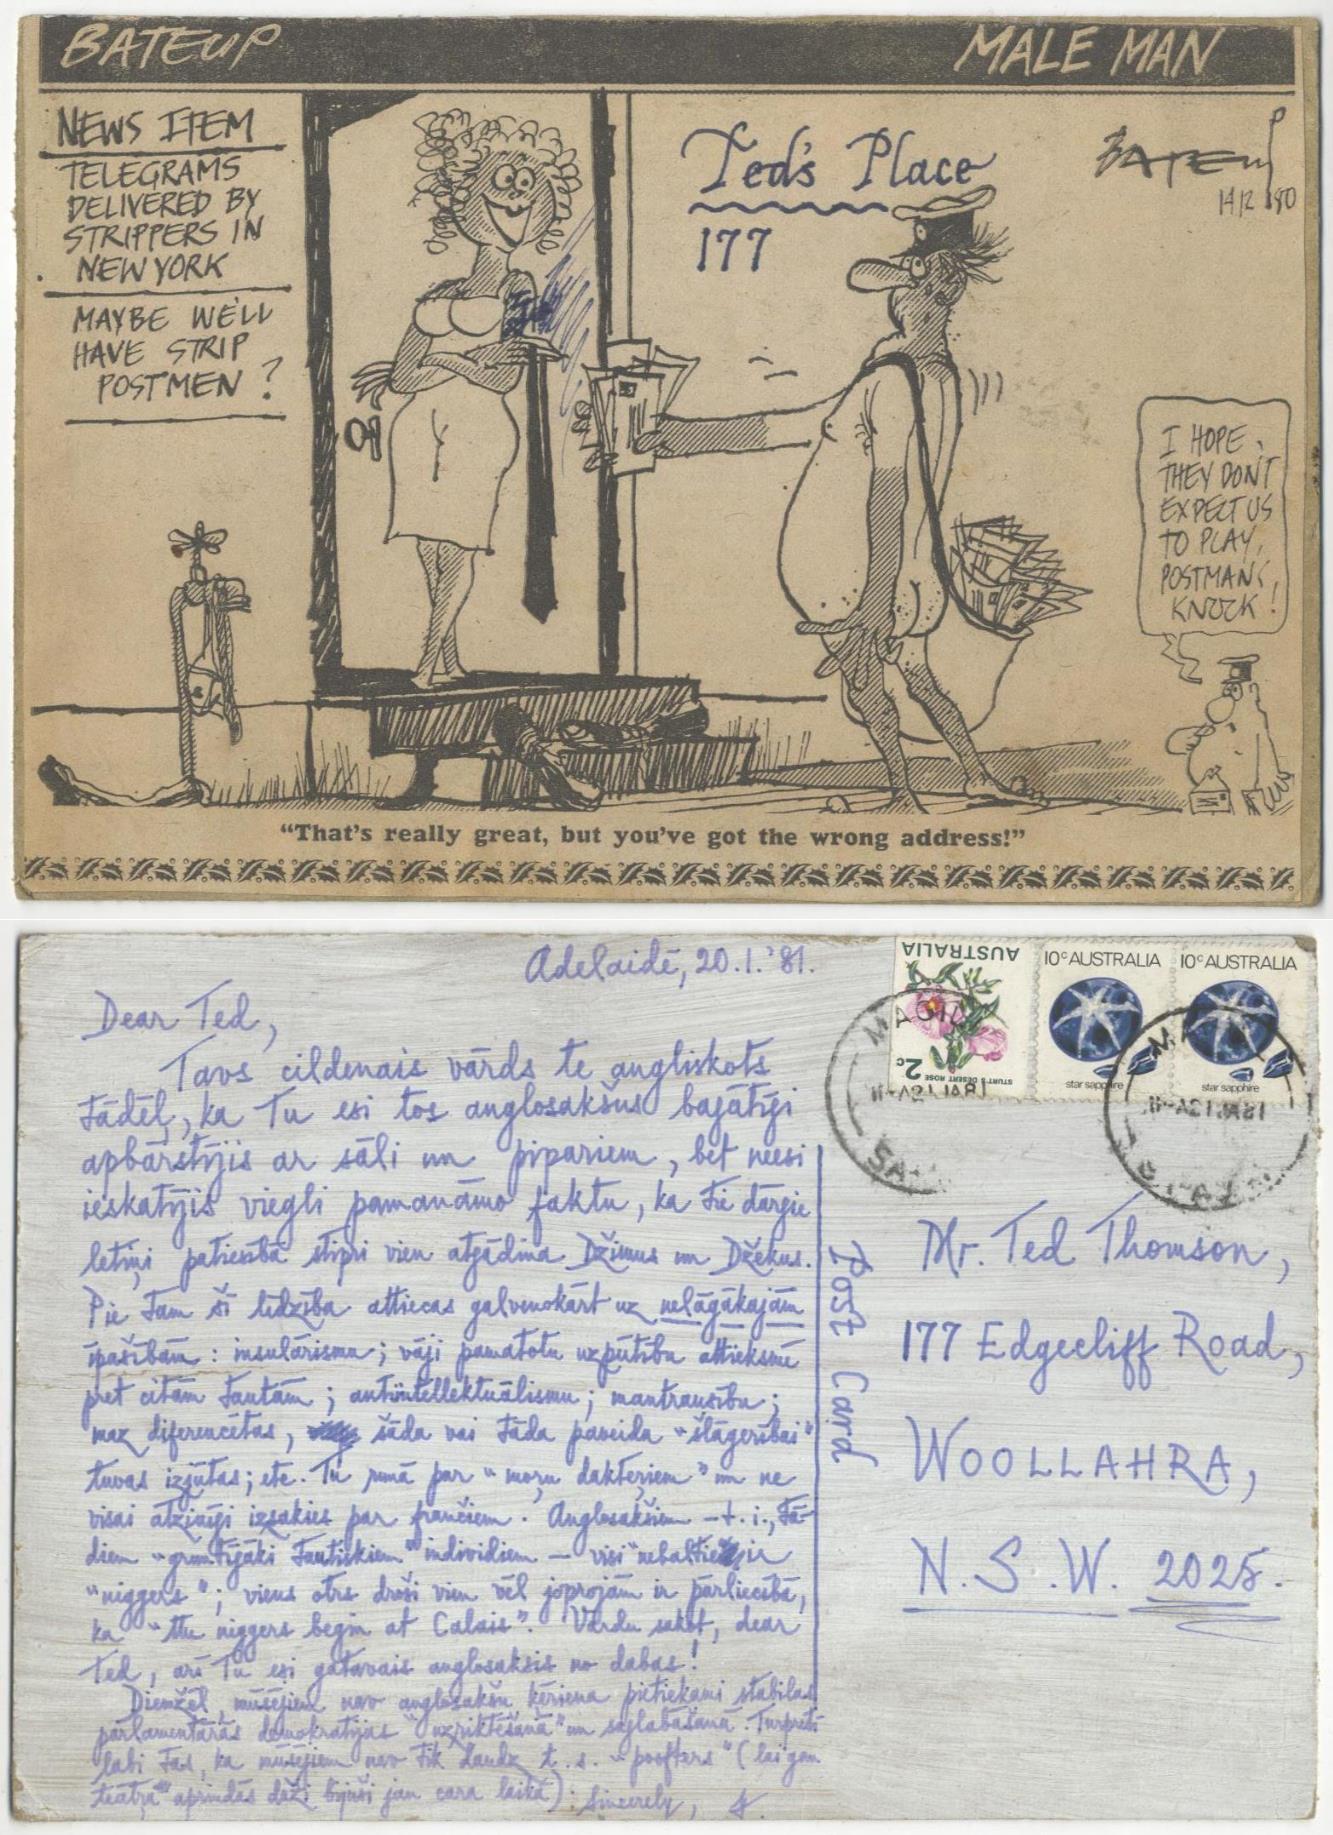 BATEUP
MALE MAN
NEWS ITEM
TELEGRAMS
DELIVERED BY
STRIPPERS IN
NEW YORK
MAYBE WE'LL
HAVE STRIP
POSTMEN ?
Ted's Place
177
BATEUP
14 12 80
I HOPE
THEY DON'T
EXPECT US
TO PLAY,
POSTMANS
KNOCK!
"That's really great, but you've got the wrong address!"
Adelaidē, 20.1.'81.
Dear Ted,
Tavs cildenais vārds te angliskots
tādēļ, ka Tu esi tos anglosakšus bagātīgi
apbārstījis ar sāli un pipariem, bet neesi
ieskatījis viegli pamanāmo faktu, ka tie dārgie
letiņi patiesībā stipri vien atgādina Džimus un Džekus.
Pie tam šī līdzība attiecas galvenokārt uz nelāgākajām
īpašībām: insulārismu; vāji pamatotu uzpūtību attieksmē
pret citām tautām; antiintellektuālismu; mantrausību;
maz diferencētas, šāda vai tāda paveida "šlāgerībai"
tuvas izjūtas; etc. Tu runā par "moru dakteriem" un ne
visai atzinīgi izsakies par frančiem. Anglosakšiem – t.i., tā-
diem "gruntīgāki tautiskiem" individiem – visi "nebaltie" ir
"niggers"; viens otrs droši vien vēl joprojām ir pārliecībā,
ka "the niggers begin at Calais". Vārdu sakot, dear
Ted, arī Tu esi gatavais anglosaksis no dabas!
Diemžēl, mūsējiem nav anglosakšu ķēriena pietiekami stabilas
parlamentārās demokrātijas "uzriktēšanā" un saglabāšanā. Turpretī
labi tas, ka mūsējiem nav tik daudz t.s. "poofters" (lai gan
teātra aprindās daži bijuši jau cara laikā). Sincerely,
Post Card
AUSTRALIA
2c
STURT'S DESERT ROSE
10c AUSTRALIA
star sapphire
10c AUSTRALIA
star sapphire
Mr. Ted Thomson,
177 Edgecliff Road,
WOOLLAHRA,
N.S.W. 2025.